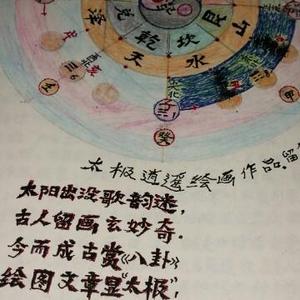 兑 乾 坎 艮
泽 天 水 山
太极逍遥绘画作品.留
太阳出没歌韵迷,
古人留画玄妙奇.
今而成古赏《八卦》
绘图文章显“太极”,